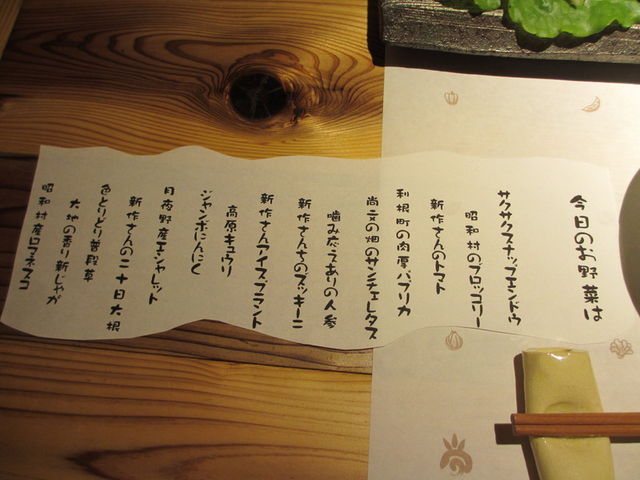 今日のお野菜は
サクサクスナップエンドウ
昭和村のブロッコリー
新作さんのトマト
利根町の肉厚パプリカ
尚文の畑のサンチェレタス
噛みたえありの人参
新作さんちのズッキーニ
新作さんアイスプラント
高原キュウリ
ジャンボにんにく
月夜野産エシャレット
新作さんの二十日大根
色とりどり普段草
大地の香り新じゃが
昭和村産ロマネスコ